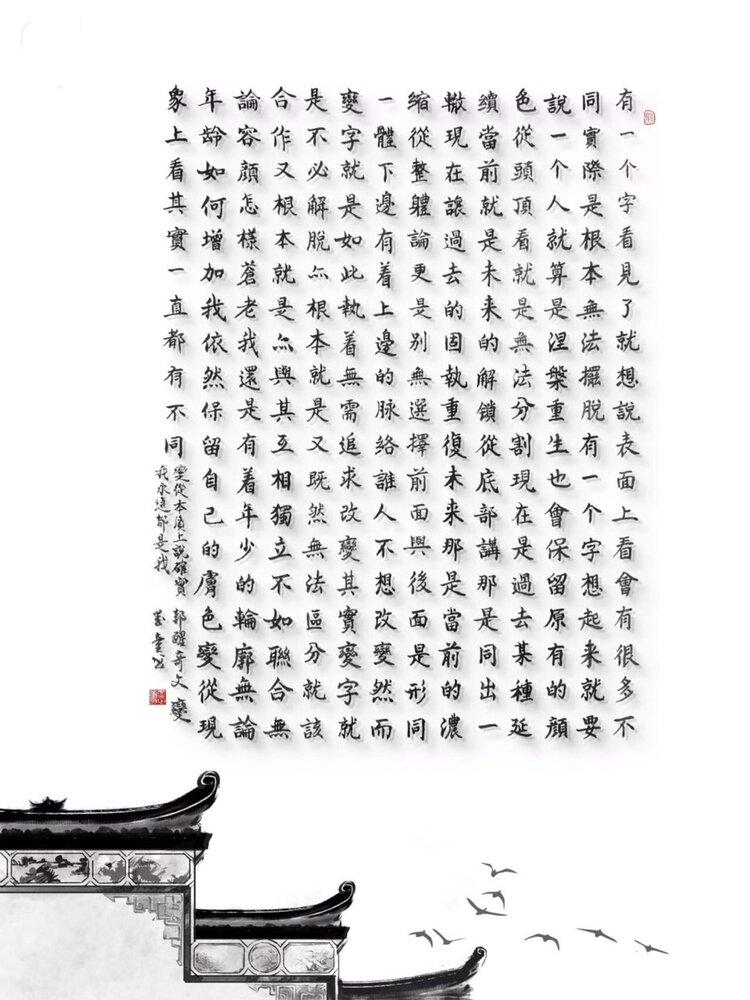 有一个字看見了就想說表面上看會有很多不
同實際是根本無法擺脫有一个字想起來就要
說一个人就算是涅槃重生也會保留原有的顏
色從頭頂看就是無法分割現在是過去某種延
續當前就是未來的解鎖從底部講那是同出一
轍現在讓過去的固執重復未來那是當前的濃
縮從整軆論更是別無選擇前面與後面是形同
一體下邊有着上邊的脉絡誰人不想改變然而
變字就是如此執着無需追求改變其實變字就
是不必解脫尒根本就是又既然無法區分就該
合作又根本就是尒與其互相獨立不如聯合無
論容顏怎樣蒼老我還是有着年少的輪廓無論
年龄如何增加我依然保留自己的膚色變從現
象上看其實一直都有不同
變從本质上說確實 郭醒奇文 變
我永遠都是我